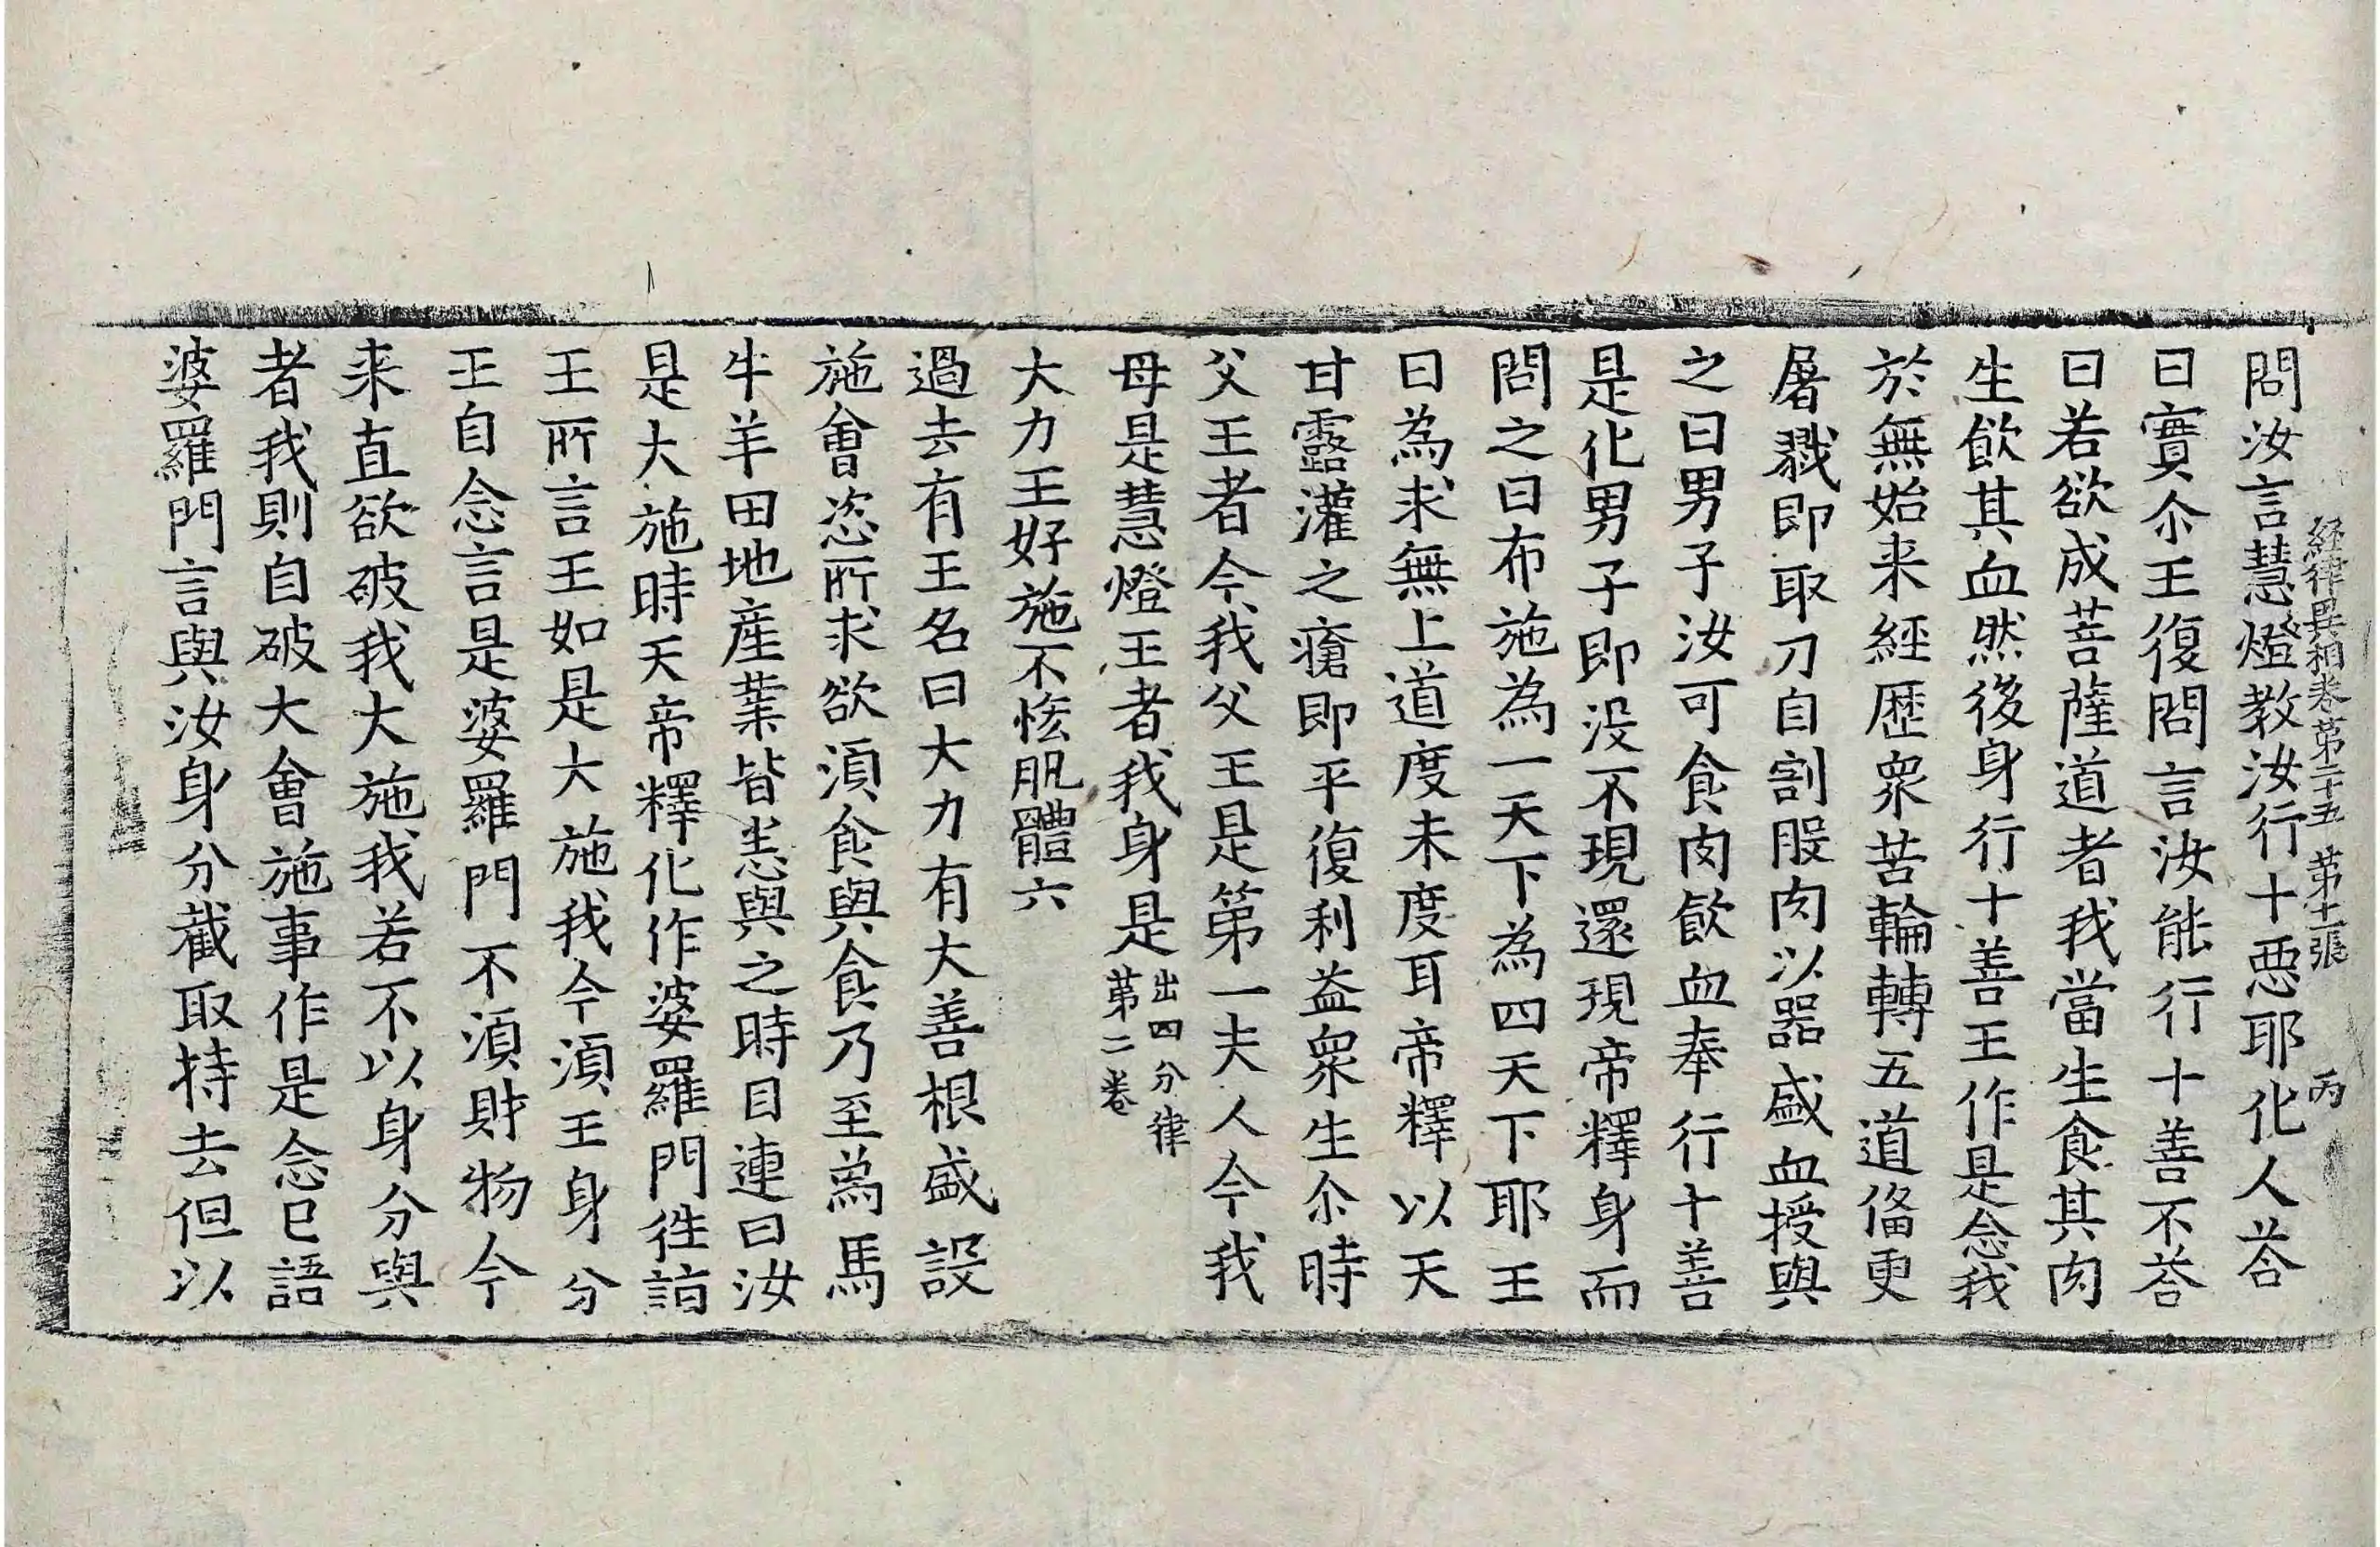 経律異相卷第二十五 第十二張 丙
問汝言慧燈教汝行十惡耶化人荅
曰實尒王復問言汝能行十善不荅
曰若欲成菩薩道者我當生食其肉
生飲其血然後身行十善王作是念我
於無始来經歷衆苦輪轉五道俻更
屠戮即取刀自割股肉以器盛血授與
之曰男子汝可食肉飲血奉行十善
是化男子即没不現還現帝釋身而
問之曰布施為一天下為四天下耶王
曰為求無上道度未度耳帝釋以天
甘露灌之瘡即平復利益衆生尒時
父王者今我父王是第一夫人今我
母是慧燈王者我身是出四分律第二卷
大力王好施不恡肌體六
過去有王名曰大力有大善根盛設
施會恣所求欲湏食與食乃至為馬
牛羊田地産業皆悉與之時目連曰汝
是大施時天帝釋化作婆羅門徃詣
王所言王如是大施我今湏王身分
王自念言是婆羅門不湏財物今
来直欲破我大施我若不以身分與
者我則自破大會施事作是念已語
婆羅門言與汝身分截取持去但以